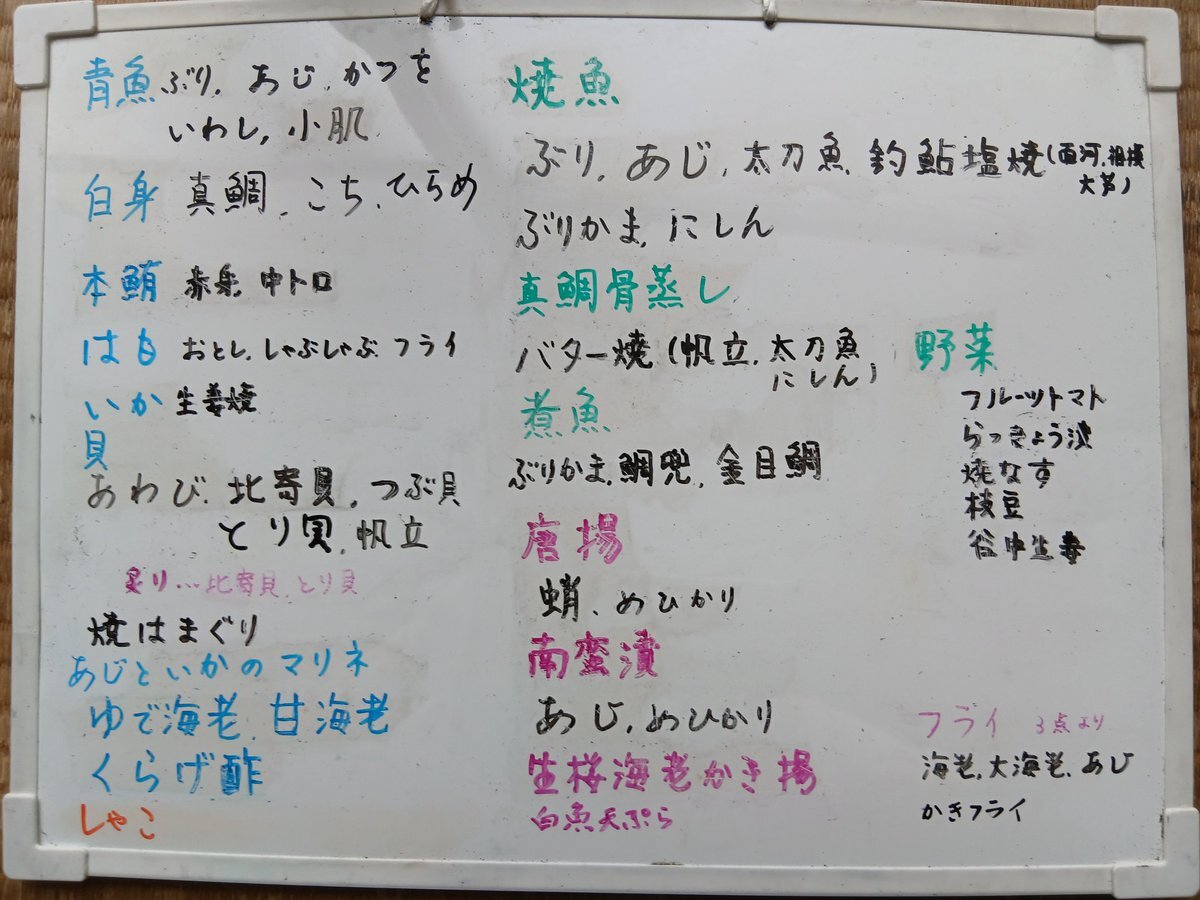 青魚 ぶり、あじ、かつを
いわし、小肌
白身 真鯛、こち、ひらめ
本鮪 赤身 中トロ
はも おとし、しゃぶしゃぶ フライ
いか 生姜焼
貝
あわび、北寄貝、つぶ貝
とり貝、帆立
炙り…北寄貝、とり貝
焼はまぐり
あじといかのマリネ
ゆで海老、甘海老
くらげ酢
しゃこ
焼魚
ぶり、あじ、太刀魚 釣鮎塩焼(
大芦)
ぶりかま、にしん
真鯛骨蒸し
バター焼(帆立、太刀魚、
にしん)
煮魚
ぶりかま、鯛兜、金目鯛
唐揚
蛸、めひかり
南蛮漬
あじ、めひかり
生桜海老かき揚
白魚天ぷら
野菜
フルーツトマト
らっきょう漬
焼なす
枝豆
谷中生姜
フライ 3点より
海老、大海老、あじ
かきフライ